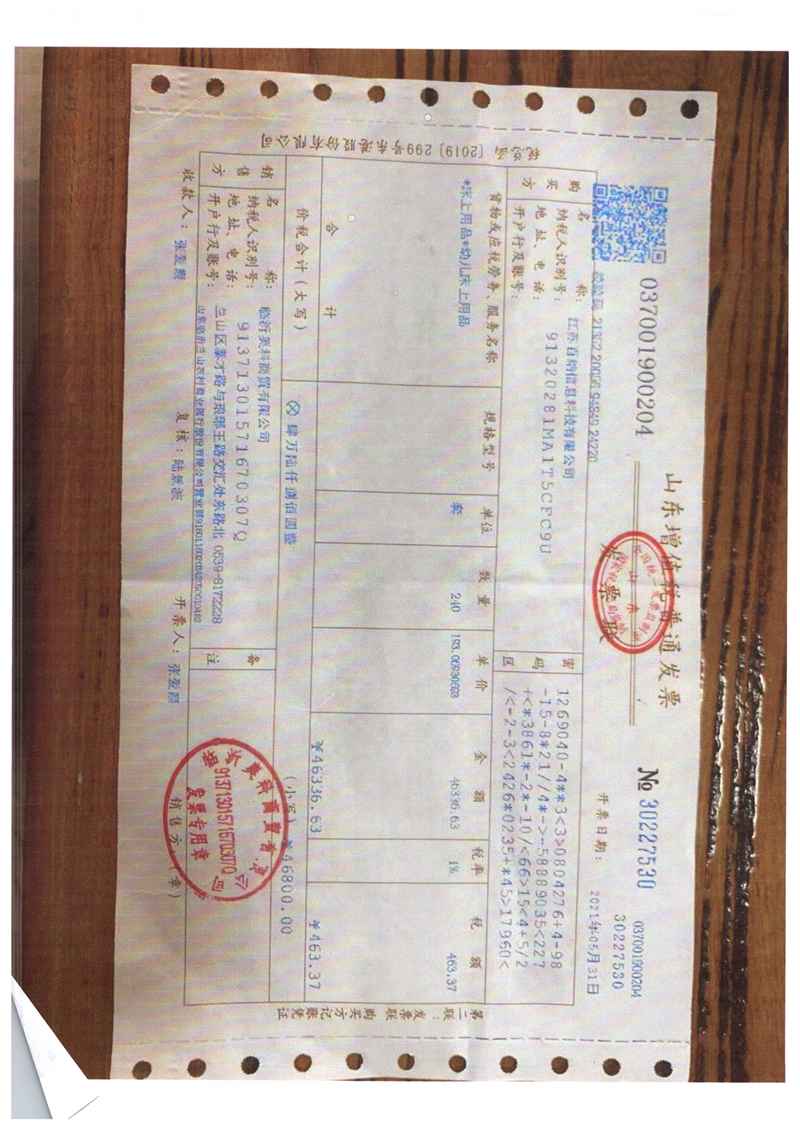 山东增值税普通发票
发票联
037001900204
№ 30227530
037001900204
30227530
校验码 21302 20006 94849 24220
开票日期: 2021年05月31日
购买方
名 称: 江苏百纳信息科技有限公司
纳税人识别号: 91320281MA1T5CFC9U
地 址、电 话:
开户行及账号:
密码区
1269040-4**3<3>0804276+4-98
-15-8*21//4*->-58889035<227
+<*3861*-2*-10/<66>15<4+5/2
/<-2-3<2426*0235+*45>17960<
货物或应税劳务、服务名称 规格型号 单位 数量 单价 金额 税率 税额
*床上用品*幼儿床上用品 套 240 46336.63 1% 463.37
合 计 ¥46336.63 ¥463.37
价税合计(大写) ⊗肆万陆仟捌佰圆整 (小写) ¥46800.00
销售方
名 称: 临沂奥科商贸有限公司
纳税人识别号: 91371301571670307Q
地 址、电 话: 兰山区蒙才路与琅琊王路交汇处东路北 0539-8172228
开户行及账号:
备注
收款人: 复核: 开票人:
销售方:(章)
91371301571670307Q
发票专用章
〔2019〕299号
第二联:发票联 购买方记账凭证